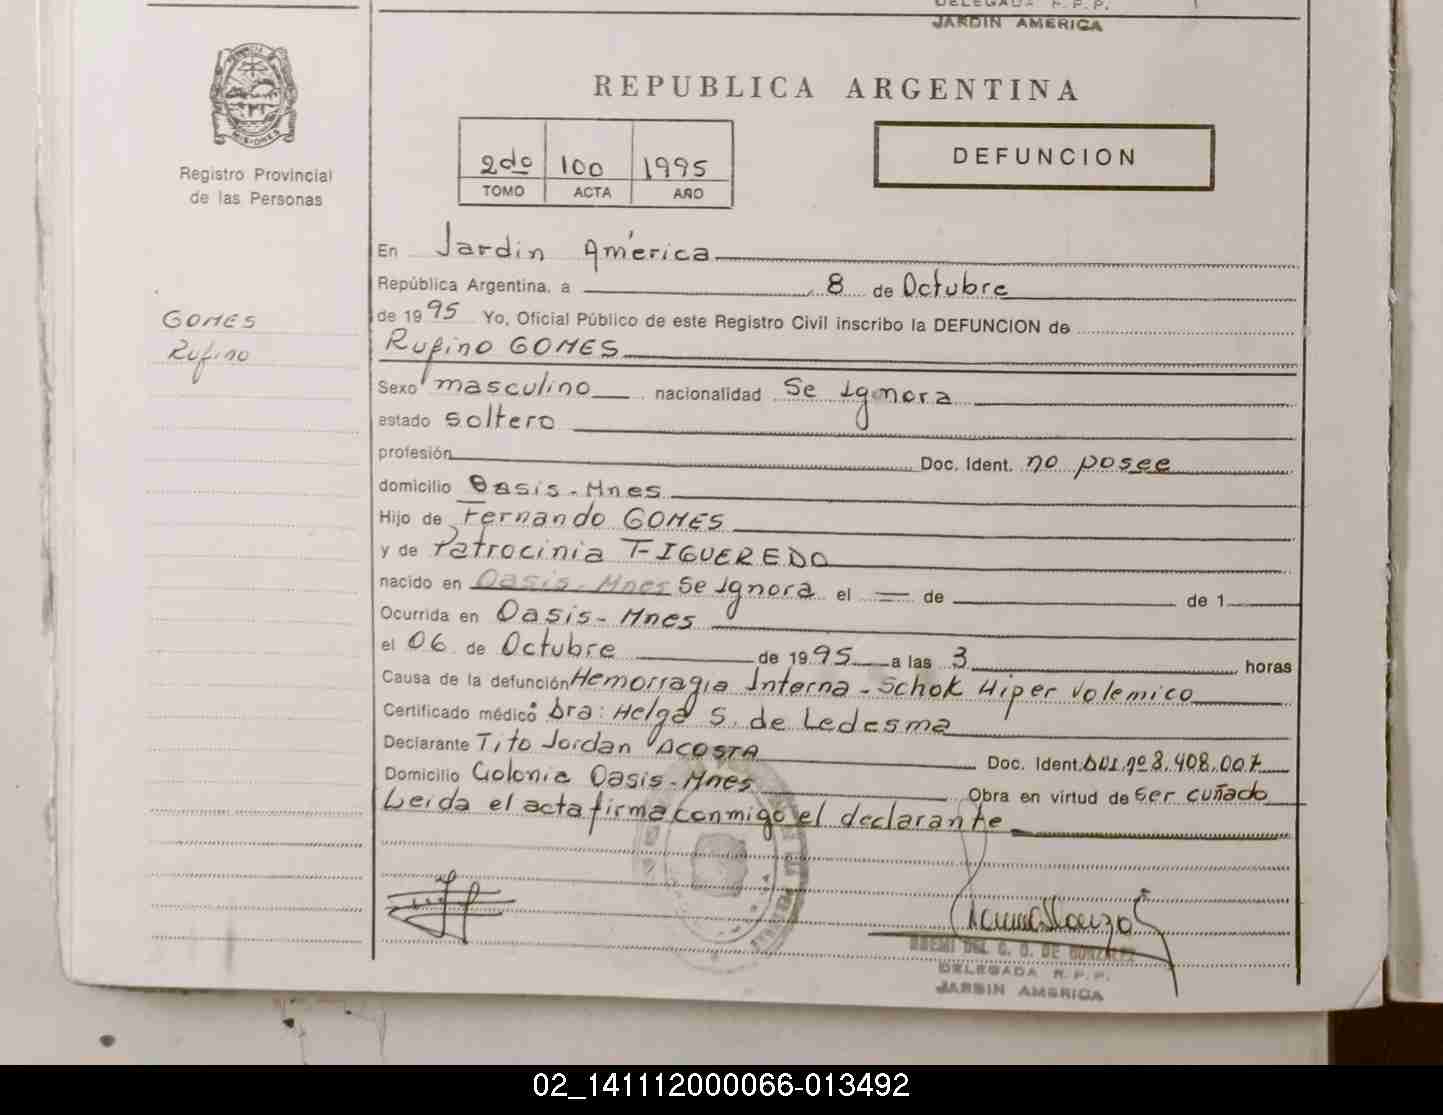 DELEGADA R.P.P.
JARDIN AMERICA
PROVINCIA DE
MISIONES
Registro Provincial
de las Personas
REPUBLICA ARGENTINA
2do 100 1995
TOMO ACTA AÑO
DEFUNCION
En Jardin América
República Argentina, a 8 de Octubre
de 1995 Yo, Oficial Público de este Registro Civil inscribo la DEFUNCION de
GOMES
Rufino
Rufino GOMES
Sexo masculino nacionalidad Se ignora
estado soltero
profesión Doc. Ident. no posee
domicilio Oasis - Mnes
Hijo de Fernando GOMES
y de Patrocinia FIGUEREDO
nacido en Oasis - Mnes Se ignora el = de de 1
Ocurrida en Oasis - Mnes
el 06 de Octubre de 1995 a las 3 horas
Causa de la defunción Hemorragia Interna - Schok Hiper Volemico
Certificado médico Dra: Helga S. de Ledesma
Declarante Tito Jordan ACOSTA Doc. Ident. DNI. nº 8.408.007
Domicilio Colonia Oasis - Mnes Obra en virtud de Ser cuñado
Leida el acta firma conmigo el declarante
DELEGADA R.P.P.
JARDIN AMERICA
02_141112000066-013492